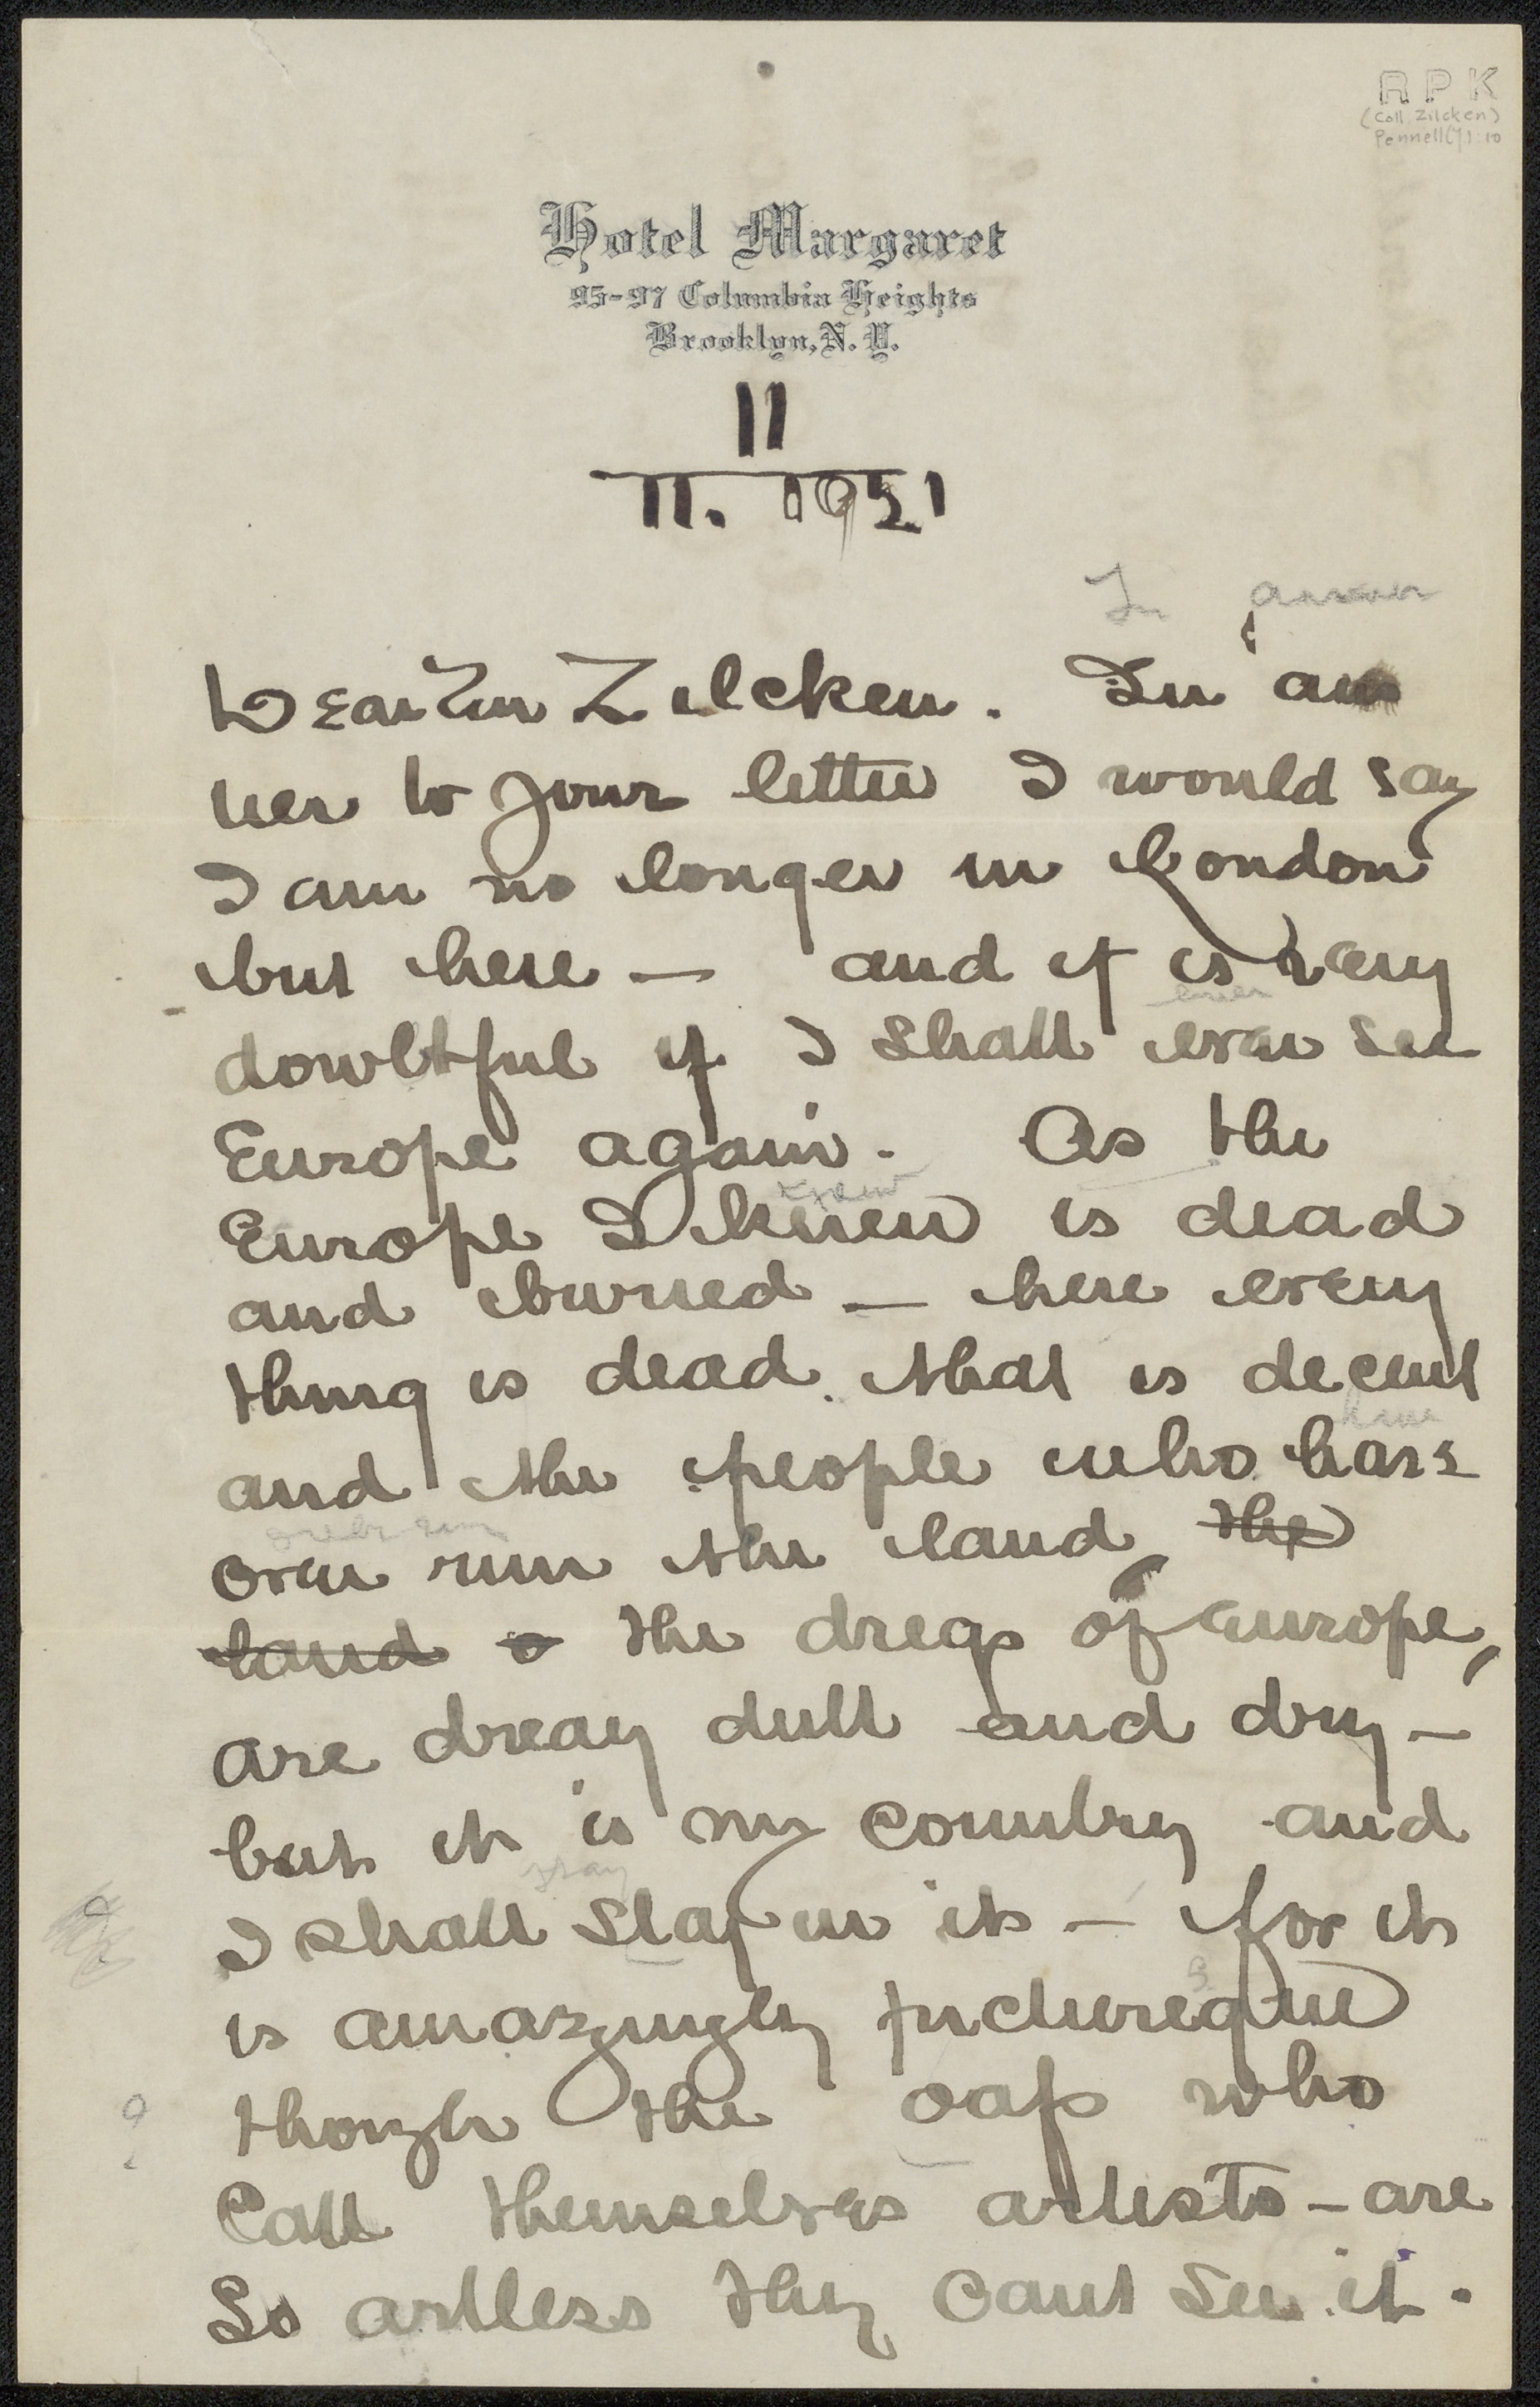 R P K
(Coll. Zilcken)
Pennell(J) : 10
Hotel Margaret
95-97 Columbia Heights
Brooklyn, N. Y.
11
11. 1921
In answer
Dear Mr Zilcken. In ans
wer to your letter I would say
I am no longer in London
but here — and it is very
ever
doubtful if I shall ever see
Europe again. As the
knew
Europe I knew is dead
and buried — here every
thing is dead that is decent
have
and the people who have
over run
over run the land, the
land o the dregs of Europe,
are dreay dull and dry —
but it is my country and
stay
I shall stay in it — for it
s
is amazingly pictureque
? though the oafs who
Call themselves artists — are
So artless they cant see it.